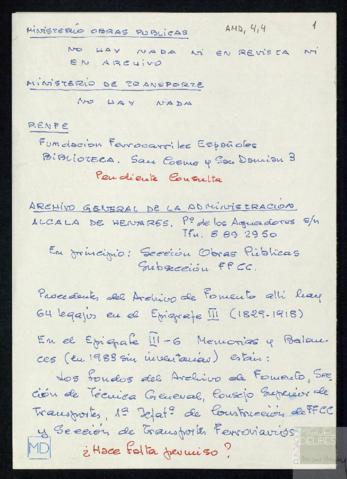 AMD, 4,4
1
MINISTERIO OBRAS PUBLICAS
NO HAY NADA NI EN REVISTA NI
EN ARCHIVO
MINISTERIO DE TRANSPORTE
NO HAY NADA
RENFE
Fundacion Ferrocarriles Españoles
BIBLIOTECA. San Cosme y San Damian 3
Pendiente Consulta
ARCHIVO GENERAL DE LA ADMINISTRACION
ALCALA DE HENARES. Pº de los Aguadores s/n
Tfn. 8 89 29 50
En principio: Sección Obras Públicas
Subsección FFCC.
Procedentes del Archivo de Fomento allí hay
64 legajos en el Epigrafe III (1829-1918)
En el Epigrafe III-6 Memorias y Balan-
ces (en 1988 sin inventariar) están:
Los fondos del Archivo de Fomento, Sec-
ción de Técnica General, Consejo Superior de
Transportes, 1ª Jefatª de Construcción de FFCC
y Sección de Transportes Ferroviarios.
¿Hace falta permiso?
MD
DELIBES